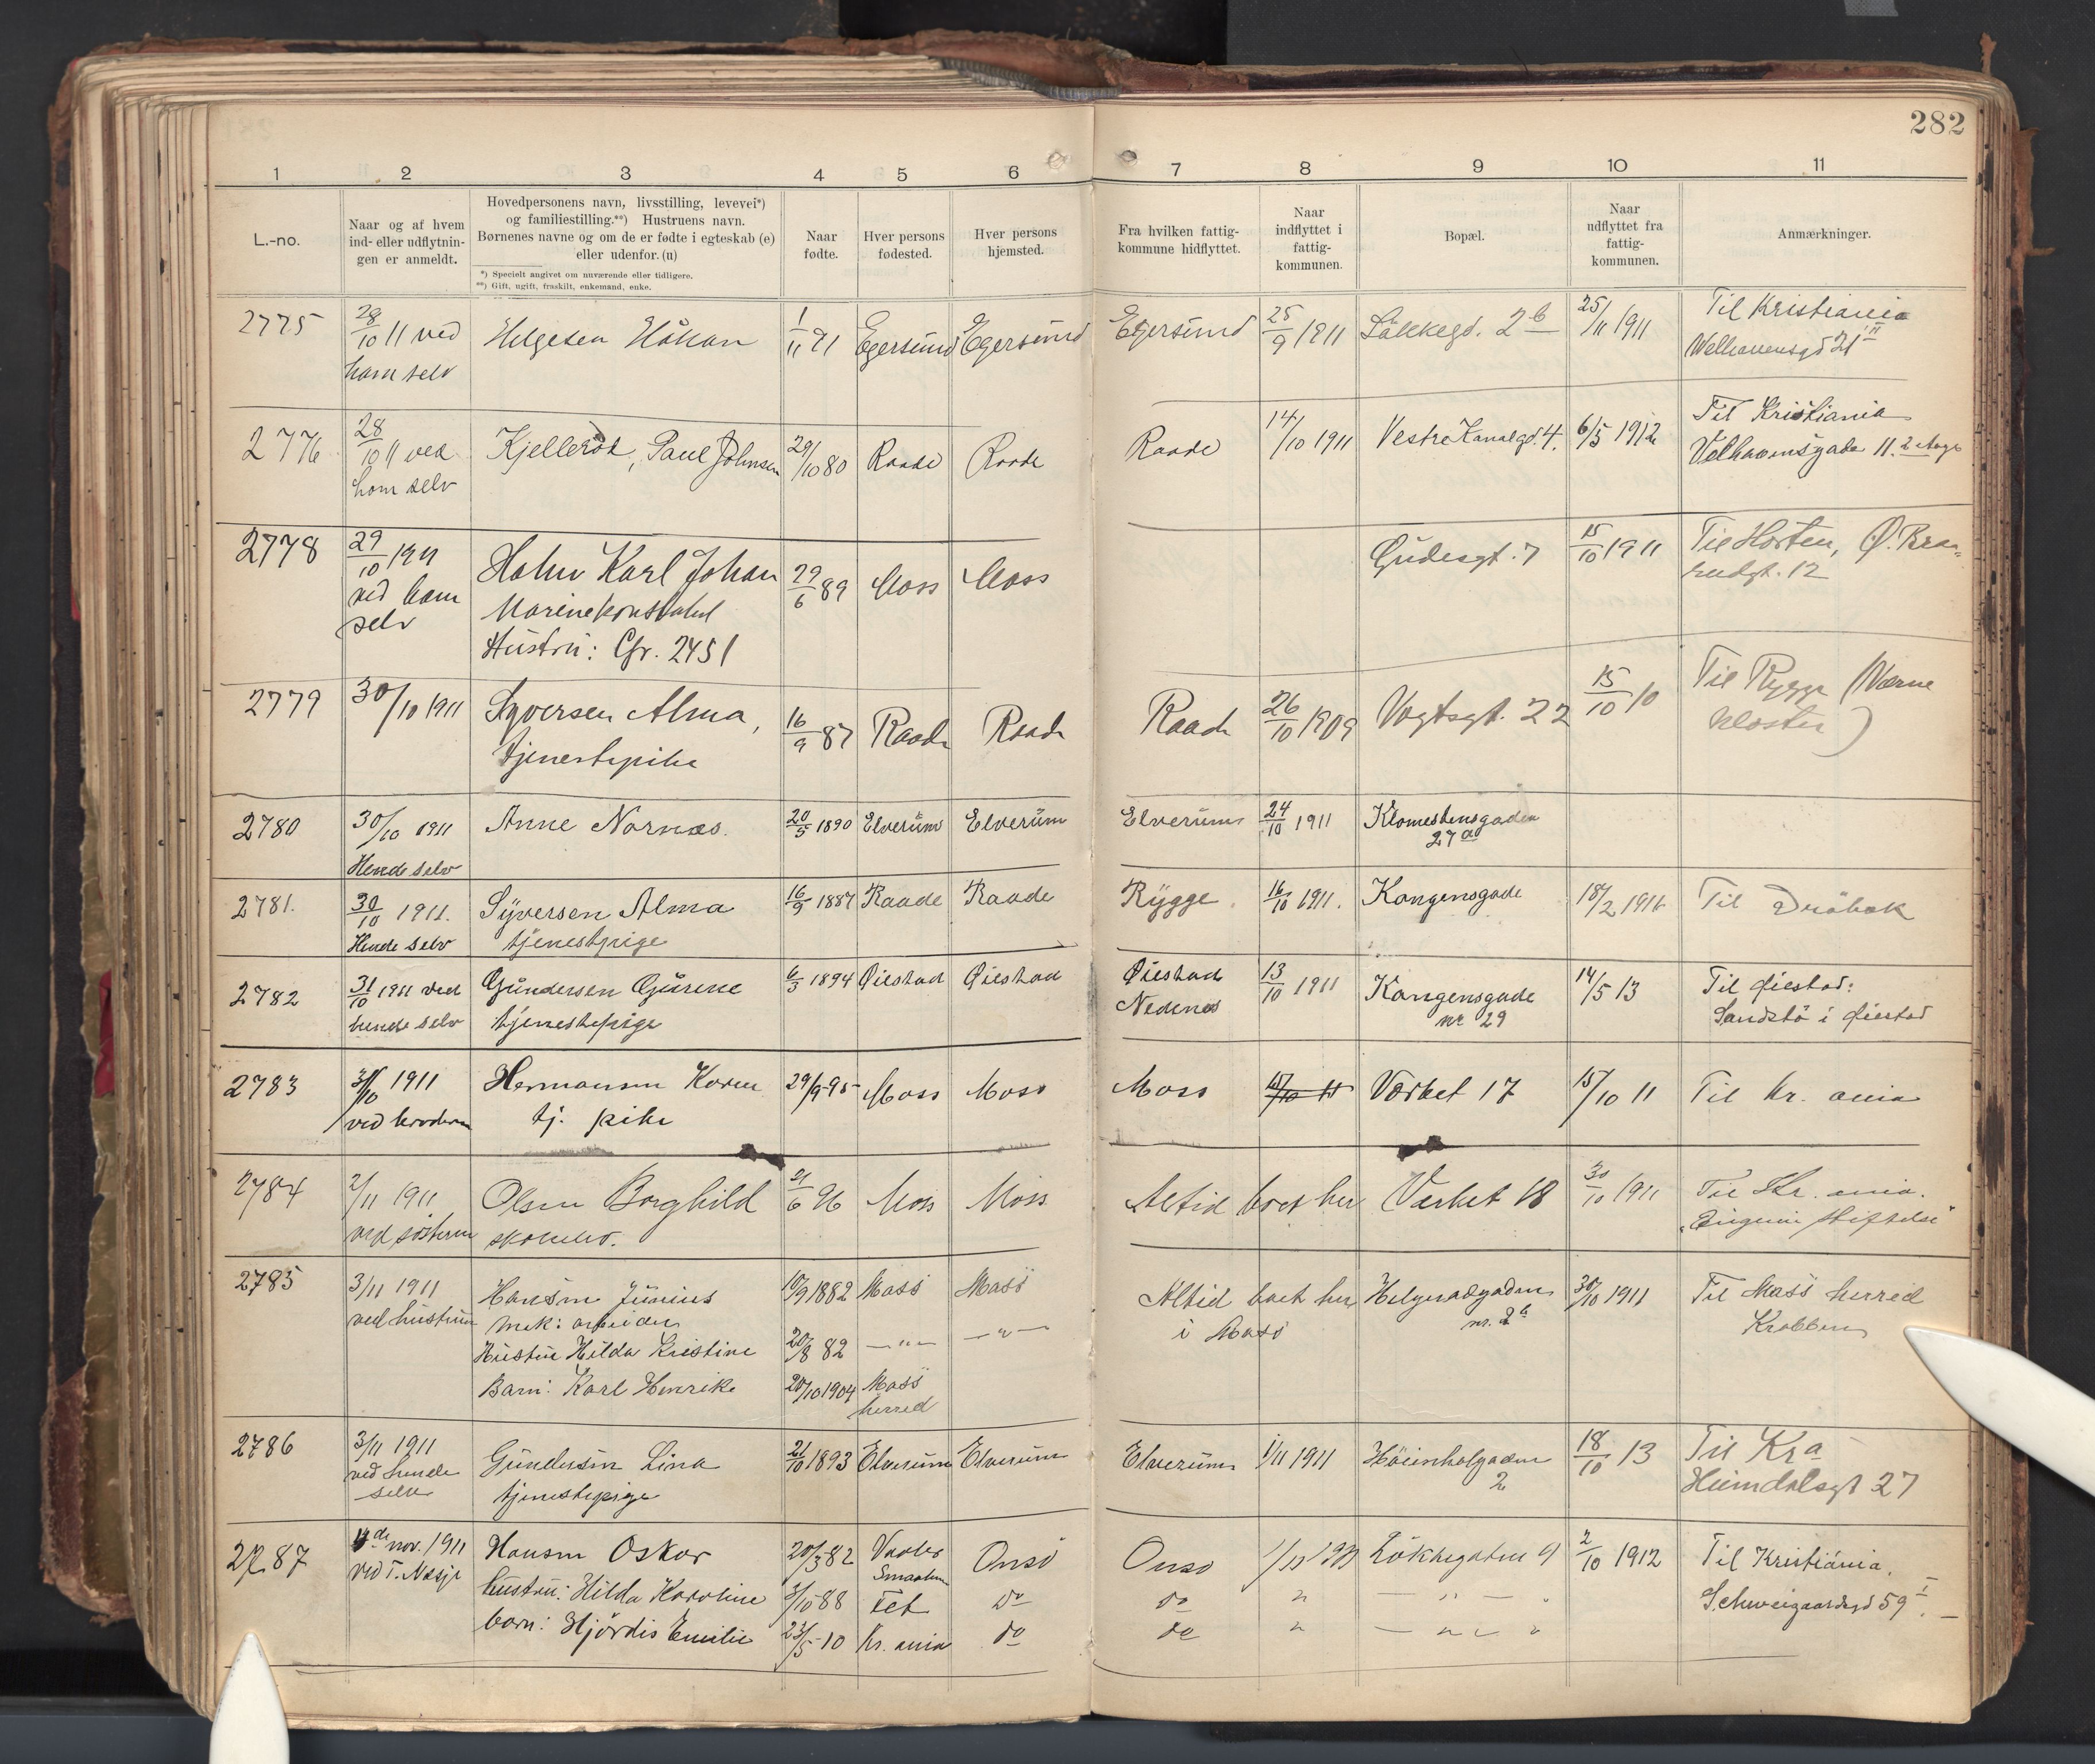 282
1 2 3 4 5 6 7 8 9 10 11
L.-no.
Naar og af hvem
ind- eller udflytnin-
gen er anmeldt.
Hovedpersonens navn, livsstilling, levevei*)
og familiestilling.**) Hustruens navn.
Børnenes navne og om de er fødte i egteskab (e)
eller udenfor. (u)
*) Specielt angivet om nuværende eller tidligere.
**) Gift, ugift, fraskilt, enkemand, enke.
Naar
fødte.
Hver persons
fødested.
Hver persons
hjemsted.
Fra hvilken fattig-
kommune hidflyttet.
Naar
indflyttet i
fattig-
kommunen.
Bopæl.
Naar
udflyttet fra
fattig-
kommunen.
Anmærkninger.
2775 28/10 11 ved Helgesen Håkan 1/11 91 Egersund Egersund Egersund 25/9 1911 Løkkegd. 2b 25/11 1911 Til Kristiania
ham selv Welhavensgd 21 III
2776 28/10 11 ved Kjellerød, Paul Johnsen 29/10 80 Raade Raade Raade 14/10 1911 Vestre Kanalgd. 4. 6/5 1912 Til Kristiania
ham selv Velhavensgade 11. 2 etage
2778 29/10 1911 Holm Karl Johan 29/6 89 Moss Moss Gudesgt. 7 15/10 1911 Til Horten, Ø. Bra-
ved ham Marinekonstabel rudgt. 12
selv Hustru: Cfr. 2451
2779 30/10 1911 Syversen Alma, 16/9 87 Raade Raade Raade 26/10 1909 Vogtsgt. 22 15/10 10 Til Rygge (Værne
tjenestepike kloster)
2780 30/10 1911 Anne Nornæs. 20/5 1890 Elverum Elverum Elverum 24/10 1911 Klomestensgaden
Hende selv 27a
2781. 30/10 1911. Syversen Alma 16/9 1887 Raade Raade Rygge. 16/10 1911. Kongensgade 18/2 1916 Til Drøbak
Hende selv tjenestpige
2782 31/10 1911 ved Gundersen Gurine 6/5 1894 Øiestad Øiestad Øiestad 13/10 1911 Kongensgade 14/5 13 Til Øiestad:
hende selv tjenestepige Nedenæs nr 29 Sandstø i Øiestad
2783 31/10 1911 Hermansen Karen 29/9-95 Moss Moss Moss 15/10 11 Værket 17 15/10 11 Til Kr. ania
ved broderen tj. pike
2784 2/11 1911 Olsen Borghild 21/6 96 Moss Moss Altid boet her Værket 18 30/10 1911 Til Kr. ania.
ved søsteren skoleelev. "Eugenia Stiftelse"
2785 3/11 1911 Hansen Junius 10/9 1882 Moss Moss Altid boet her Helgerødgaden 30/10 1911 Til Moss herred
ved hustruen mek: arbeider i Moss nr. 2b Krabben
Hustru Hilda Kristine 20/8 82 — " — — " —
Barn: Karl Henrik 20/10 1904 Moss
herred
2786 3/11 1911 Gundersen Lina 21/10 1893 Elverum Elverum Elverum 1/11 1911 Høienholgaden 18/10 13 Til Kra
ved hende tjenestepige 2 Heimdalsgt 27
selv
2787 4de nov. 1911 Hansen Oskar 20/3 82 Vaaler Onsø Onsø 1/11 1911 Løkkegaten 9 2/10 1912 Til Kristiania.
ved T. Næsje Smaalen
hustru: Hilda Karoline 3/10-88 Fet do do " — " — Schweigaardsgd 59 I
barn: Hjørdis Emilie 23/5-10 Kr. ania do do " — " —